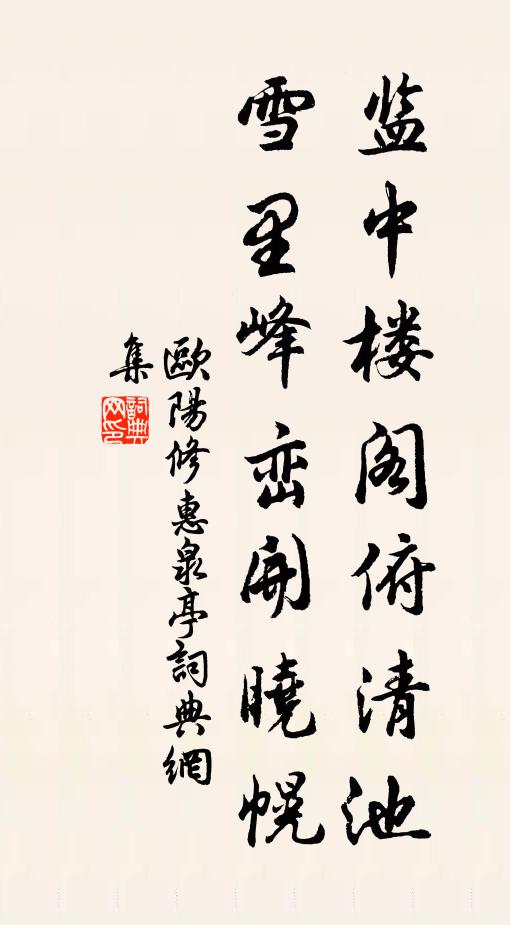 监中楼阁俯清池
雪里峰峦開曉幌
歐陽修惠泉亭詞典網
集
詞典
网印